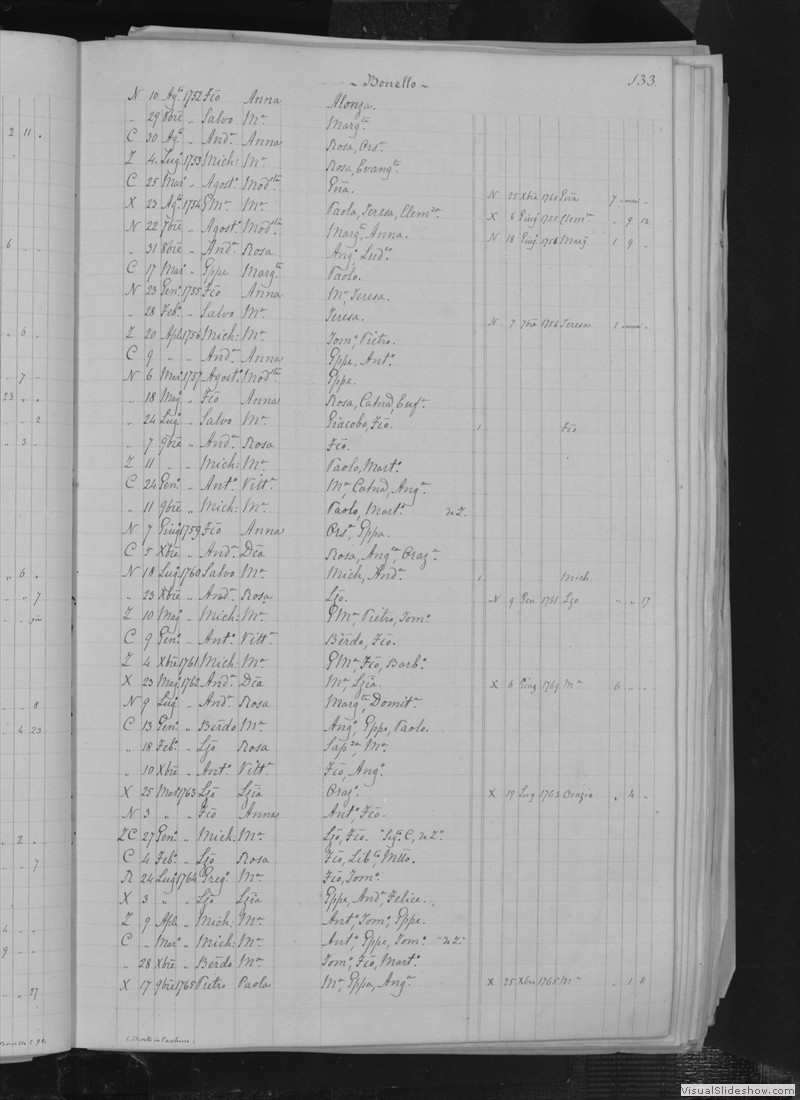 2 11 .
6
" 6 "
" 7 "
23 " "
" " 2
" 3 "
" 6 "
" " 7
" " 8
" 4 23
" 2 "
" " 7
4 " "
9 " "
" " 27
- Bonello - 133.
N 10 Agto. 1752 Fco Anna Alonza.
" 29 8bre " Salvo Ma. Margta.
C 30 Agto. " Anda. Anna Rosa, Orsa.
Z 4. Lugo. 1753 Mich: Ma. Rosa, Evangta.
C 25 Maro. " Agosto. Modsta. Gna. N 25 Xbre 1760 Gna 7 mesi "
X 23 Agto. 1754 GMa. Ma. Paola, Teresa, Clemza. X 6 Giug 1755 Clemza " 9 12
N 22 7bre " Agosto. Modsta. Margta, Anna. N 18 Giug 1756 Marg. 1 9 "
" 31 8bre " Anda. Rosa Anga, Ludco.
C 17 Maro. " Gppe Margta. Paolo.
N 23 Geno. 1755 Fco Anna Ma, Teresa.
" 28 Febo. " Salvo Ma. Teresa. N 7 7bre 1756 Teresa 1 mesi "
Z 20 Aple 1756 Mich: Ma. Tomo, Pietro.
C 9 " " Anda. Anna Gppe, Anto.
N 6 Maro. 1757 Agosto. Modsta. Gppe.
" 18 Mago. " Fco Anna Rosa, Catna, Eufa.
" 24 Lugo. " Salvo Ma. Giacobo, Fco. 1 Fco
" 7 9bre " Anda. Rosa Fco.
Z 11 " " Mich: Ma. Paolo, Marto.
C 24 Geno. " Anto. Vitta. Ma, Catna, Anga.
" 11 9bre " Mich: Ma. Paolo, Marto. da Z.
N 7 Giugo 1759 Fco Anna Orsa, Gppa.
C 5 Xbre " Anda. Dca Rosa, Anga, Graza.
N 18 Lugo 1760 Salvo Ma. Mich, Anda. 1 Mich.
" 23 Xbre " Anda. Rosa Lzo. N 9 Gen 1761 Lzo " " 17
Z 10 Mago " Mich: Ma. GMa, Pietro, Tomo.
C 9 Geno. " Anto. Vitta. Berdo, Fco.
Z 4 Xbre 1761 Mich: Ma. GMa, Fco, Barba.
X 23 Mago. 1762 Anda. Dca Ma, Lzia. X 6 Giug 1769 Ma 6 " "
N 9 Lugo. " Anda. Rosa Margta, Domita.
C 13 Geno. " Berdo Ma. Ango, Gppe, Paolo.
" 18 Febo. " Lzo Rosa Sapza, Ma.
" 10 Xbre " Anto. Vitta. Fco, Ango.
X 25 Maro 1763 Lzo Lzia Orazo. X 17 Lug 1763 Orazio " 4 "
N 3 " " Fco Anna Anto, Fco.
ZC 27 Geno. " Mich: Ma. Lzo, Fco. "Sega. C, da Z."
C 4 Febo. " Lzo Rosa Fco, Libto, Mtto.
R 24 Lugo 1764 Grego. Ma. Fco, Tomo.
X 3 " " Lzo Lzia Gppe, Anda, Felice.
Z 9 Aple " Mich: Ma. Anto, Tomo, Gppe.
C " Maro " Mich: Ma. Anto, Gppe, Tomo. "da Z."
" 28 Xbre " Berdo Ma. Tomo, Fco, Marto.
X 17 9bre 1765 Pietro Paola Ma, Gppa, Anga. X 25 Xbre 1765 Ma " 1 8
VisualSlideshow.com